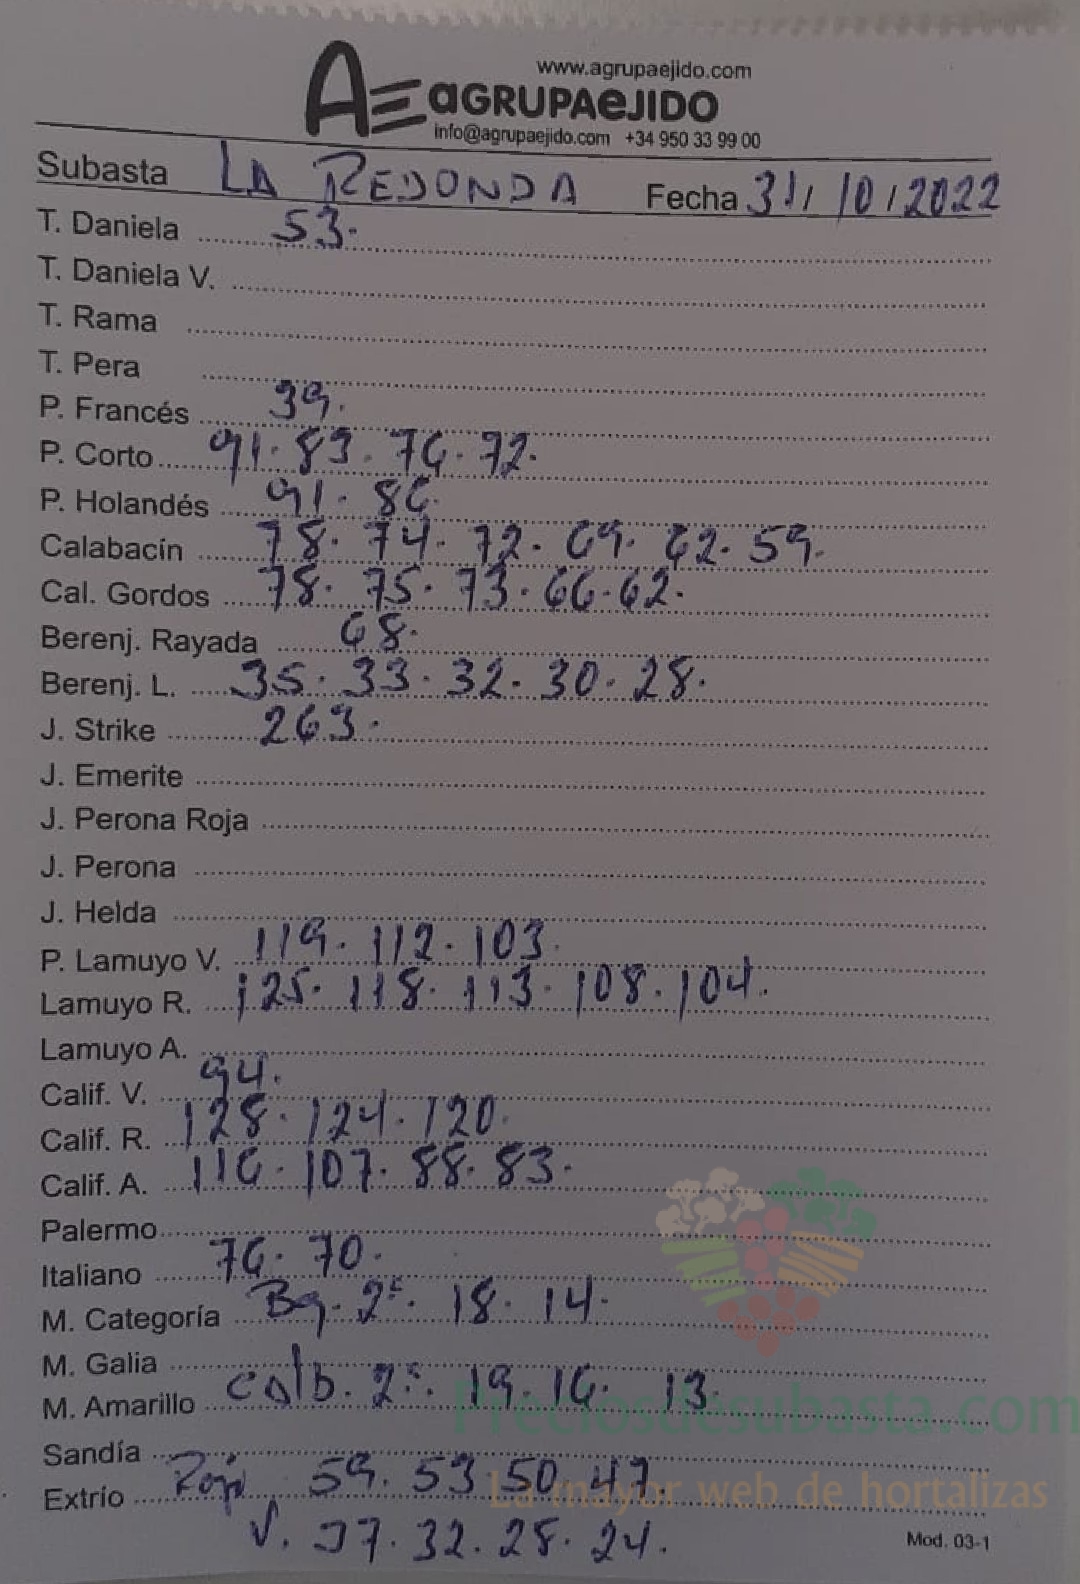 www.agrupaejido.com
AE aGRUPAeJIDO
info@agrupaejido.com +34 950 33 99 00
Subasta LA REDONDA Fecha 31/10/2022
T. Daniela 53.
T. Daniela V.
T. Rama
T. Pera
P. Francés 39.
P. Corto 91. 83. 76. 72.
P. Holandés 91. 86.
Calabacín 78. 74. 72. 69. 62. 59.
Cal. Gordos 78. 75. 73. 66. 62.
Berenj. Rayada 68.
Berenj. L. 35. 33. 32. 30. 28.
J. Strike 263.
J. Emerite
J. Perona Roja
J. Perona
J. Helda
P. Lamuyo V. 119. 112. 103.
Lamuyo R. 125. 118. 113. 108. 104.
Lamuyo A.
Calif. V. 94.
Calif. R. 128. 124. 120.
Calif. A. 116. 107. 88. 83.
Palermo
Italiano 76. 70.
M. Categoría Bg. 2ª. 18. 14.
M. Galia
M. Amarillo calb. 2ª. 19. 16. 13.
Preciosdesubasta.com
Sandía
Extrío Rojo 59. 53. 50. 47
La mayor web de hortalizas
V. 37. 32. 28. 24.
Mod. 03-1